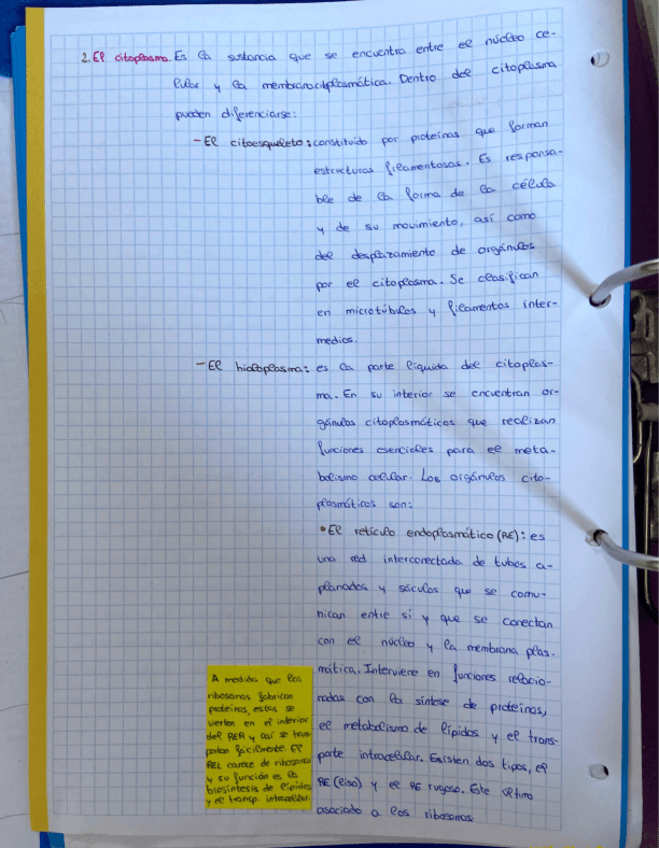 2. El citoplasma. Es la sustancia que se encuentra entre el núcleo ce-
lular y la membrana citoplasmática. Dentro del citoplasma
pueden diferenciarse:
- El citoesqueleto: constituido por proteínas que forman
estructuras filamentosas. Es responsa-
ble de la forma de la célula
y de su movimiento, así como
del desplazamiento de orgánulos
por el citoplasma. Se clasifican
en microtúbulos y filamentos inter-
medios.
- El hialoplasma: es la parte líquida del citoplas-
ma. En su interior se encuentran or-
gánulos citoplasmáticos que realizan
funciones esenciales para el meta-
bolismo celular. Los orgánulos cito-
plasmáticos son:
• El retículo endoplasmático (RE): es
una red interconectada de tubos a-
planados y sáculos que se comu-
nican entre si y que se conectan
con el núcleo y la membrana plas-
mática. Interviene en funciones relacio-
nadas con la síntesis de proteínas,
el metabolismo de lípidos y el trans-
porte intracelular. Existen dos tipos, el
RE (liso) y el RE rugoso. Este último
asociado a los ribosomas
A medida que los
ribosomas fabrican
proteínas, estas se
vierten en el interior
del RER y así se trans-
portan facilmente. El
REL carece de ribosomas
y su función es la
biosíntesis de lípidos
y el transp. intracelular.